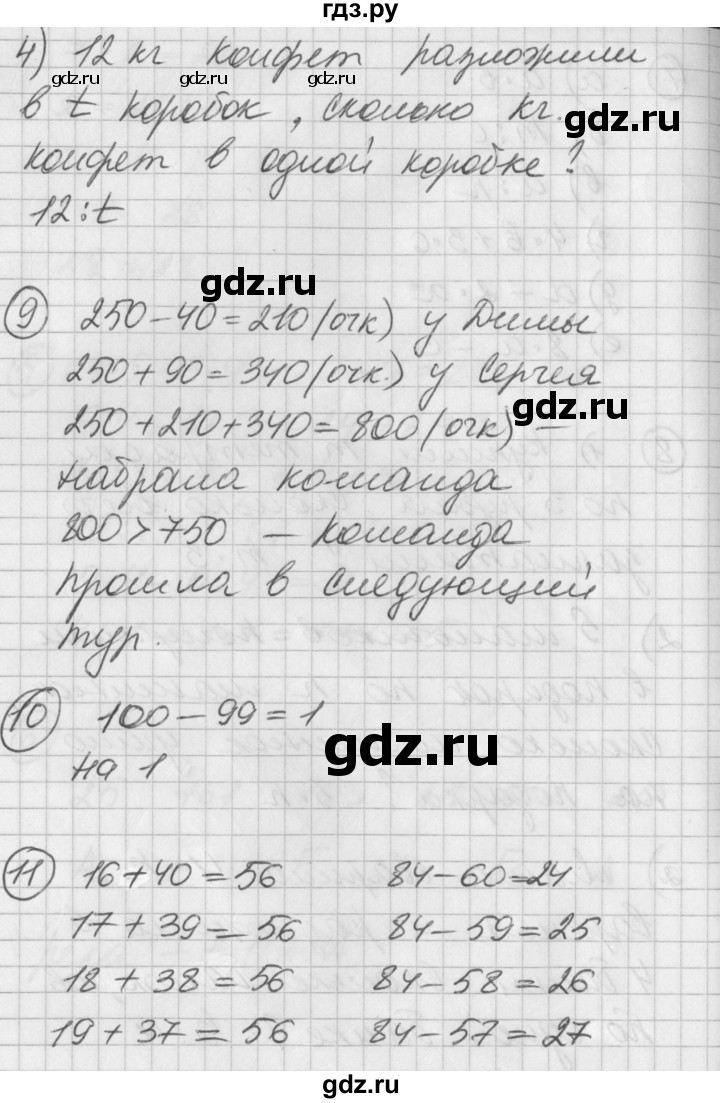 гдз.ру
4) 12 кг конфет разложили
в t коробок, сколько кг.
конфет в одной коробке?
12:t
gdz.ru gdz.ru gdz.ru
gdz.ru
gdz.ru
9 250-40=210(очк) у Димы
250+90=340(очк.) у Сергея
gdz.ru
250+210+340=800(очк) –
набрала команда
800>750 – команда
прошла в следующий
тур.
10 100-99=1
на 1
gdz.ru
11 16+40=56 84-60=24
17+39=56 84-59=25
18+38=56 84-58=26
19+37=56 84-57=27
gdz.ru